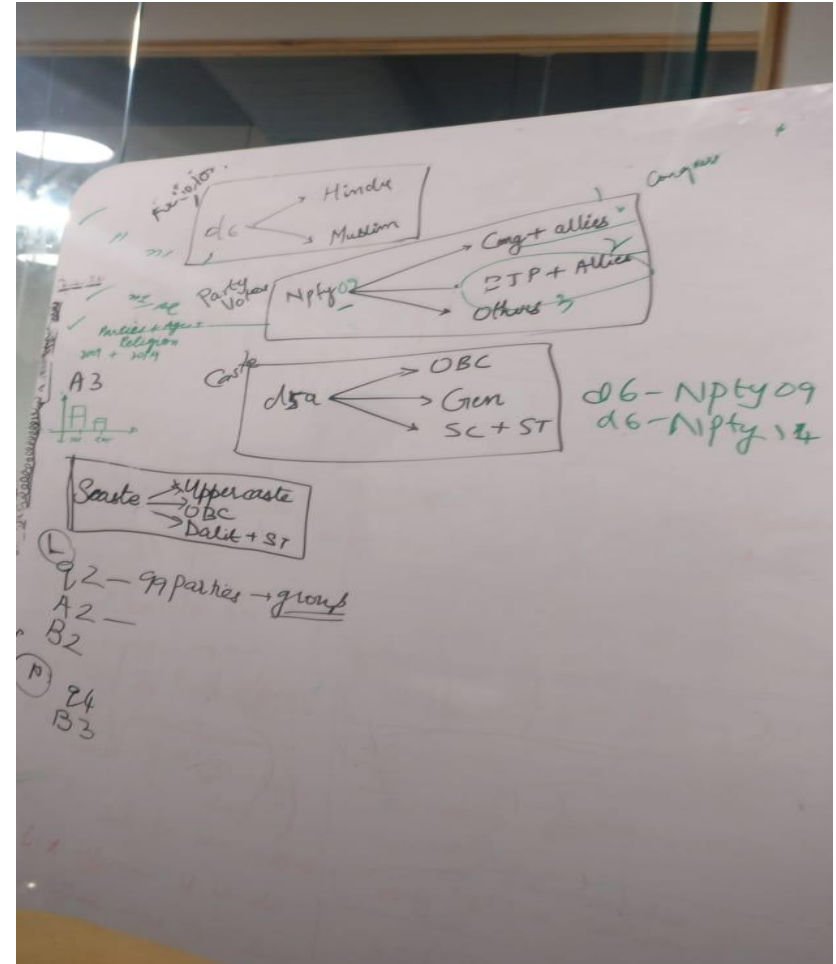 d6
Hindu
Muslim
Congress
Party
Votes
Npty 02
Cong + allies 1
BJP + Allies 2
Others 3
Parties + Age +
Religion
2009 + 2014
A3
Caste
d5a
OBC
Gen
SC + ST
d6 - Npty 09
d6 - Npty 14
Scaste
Uppercaste
OBC
Dalit + ST
L
q2 - 99 parties → group
A2 -
B2
P
q4
B3